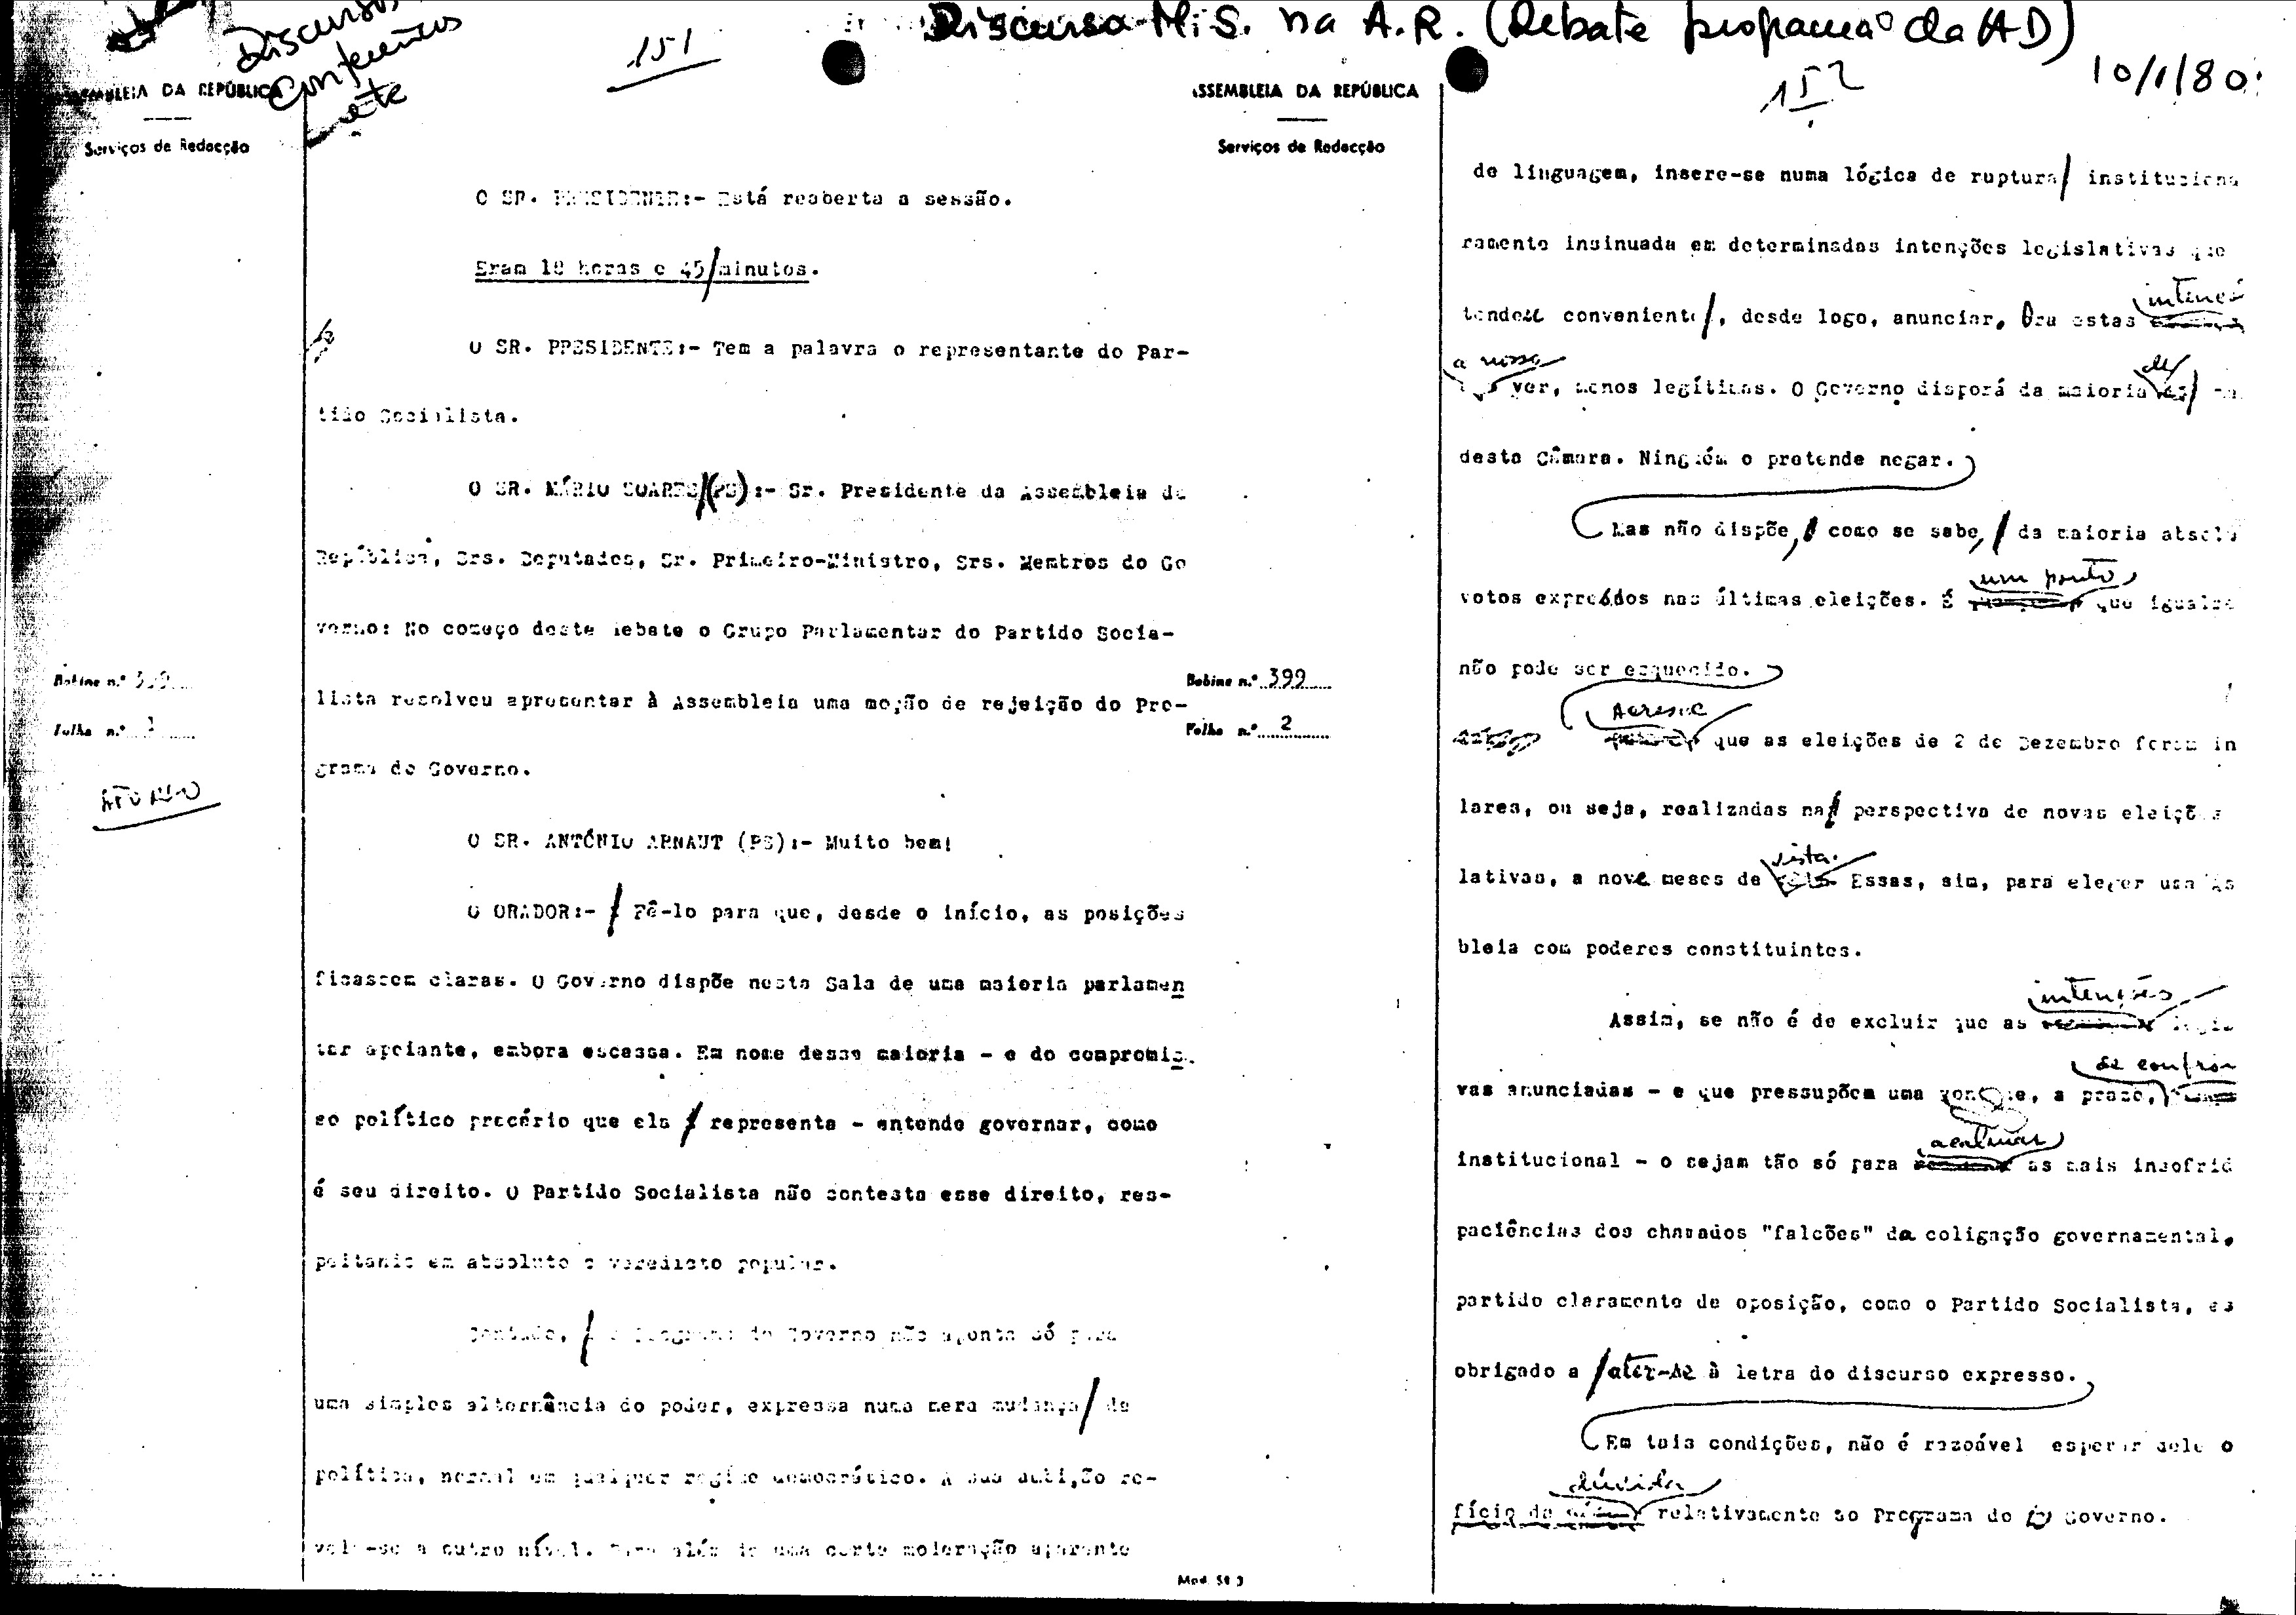 Discursos
Conferências
etc
151
Discurso M.S. na A.R. (Debate programa da AD)
10/1/80
152
ASSEMBLEIA DA REPÚBLICA
Serviços de Redacção
O SR. PRESIDENTE:- Está reaberta a sessão.
Eram 18 horas e 45 minutos.
O SR. PRESIDENTE:- Tem a palavra o representante do Par-
tido Socialista.
O SR. MÁRIO SOARES (PS):- Sr. Presidente da Assembleia da
República, Srs. Deputados, Sr. Primeiro-Ministro, Srs. Membros do Go
verno: No começo deste debate o Grupo Parlamentar do Partido Socia-
Bobine n.º
lista resolveu apresentar à Assembleia uma moção de rejeição do Pro-
Folha n.º 1
grama do Governo.
O SR. ANTÓNIO ARNAUT (PS):- Muito bem!
O ORADOR:- Fê-lo para que, desde o início, as posições
ficassem claras. O Governo dispõe nesta Sala de uma maioria parlamen
tar apoiante, embora escassa. Em nome dessa maioria - e do compromis
so político precário que ela representa - entende governar, como
é seu direito. O Partido Socialista não contesta esse direito, res-
peitando em absoluto o veredicto popular.
Contudo, o Programa do Governo não aponta só para
uma simples alternância do poder, expressa numa mera mudança de
política, normal em qualquer regime democrático. A sua ambição re-
vela-se a outro nível. Para além de uma certa moderação aparente
Mod. 58 3
ASSEMBLEIA DA REPÚBLICA
Serviços de Redacção
de linguagem, insere-se numa lógica de ruptura instituciona
ramente insinuada em determinadas intenções legislativas que
tende conveniente, desde logo, anunciar. Ora estas
a nosso ver, menos legítimas. O Governo disporá da maioria de
desta Câmara. Ninguém o pretende negar.
Mas não dispõe, como se sabe, da maioria absolu
um ponto
votos expressos nas últimas eleições. É que igualme
não pode ser esquecido.
Bobine n.º 399
Folha n.º 2
Acresce
que as eleições de 2 de Dezembro foram in
lares, ou seja, realizadas na perspectiva de novas eleições
vista.
lativas, a nove meses de Essas, sim, para eleger uma As
bleia com poderes constituintes.
intenções
Assim, se não é de excluir que as legis
de confron
vas anunciadas - e que pressupõem uma, a prazo,
acalmar
institucional - o sejam tão só para as mais insofrid
paciências dos chamados "falcões" da coligação governamental,
partido claramente de oposição, como o Partido Socialista, es
obrigado a ater-se à letra do discurso expresso.
Em tais condições, não é razoável esperar dele o
dúvida
fício da relativamente ao Programa do Governo.